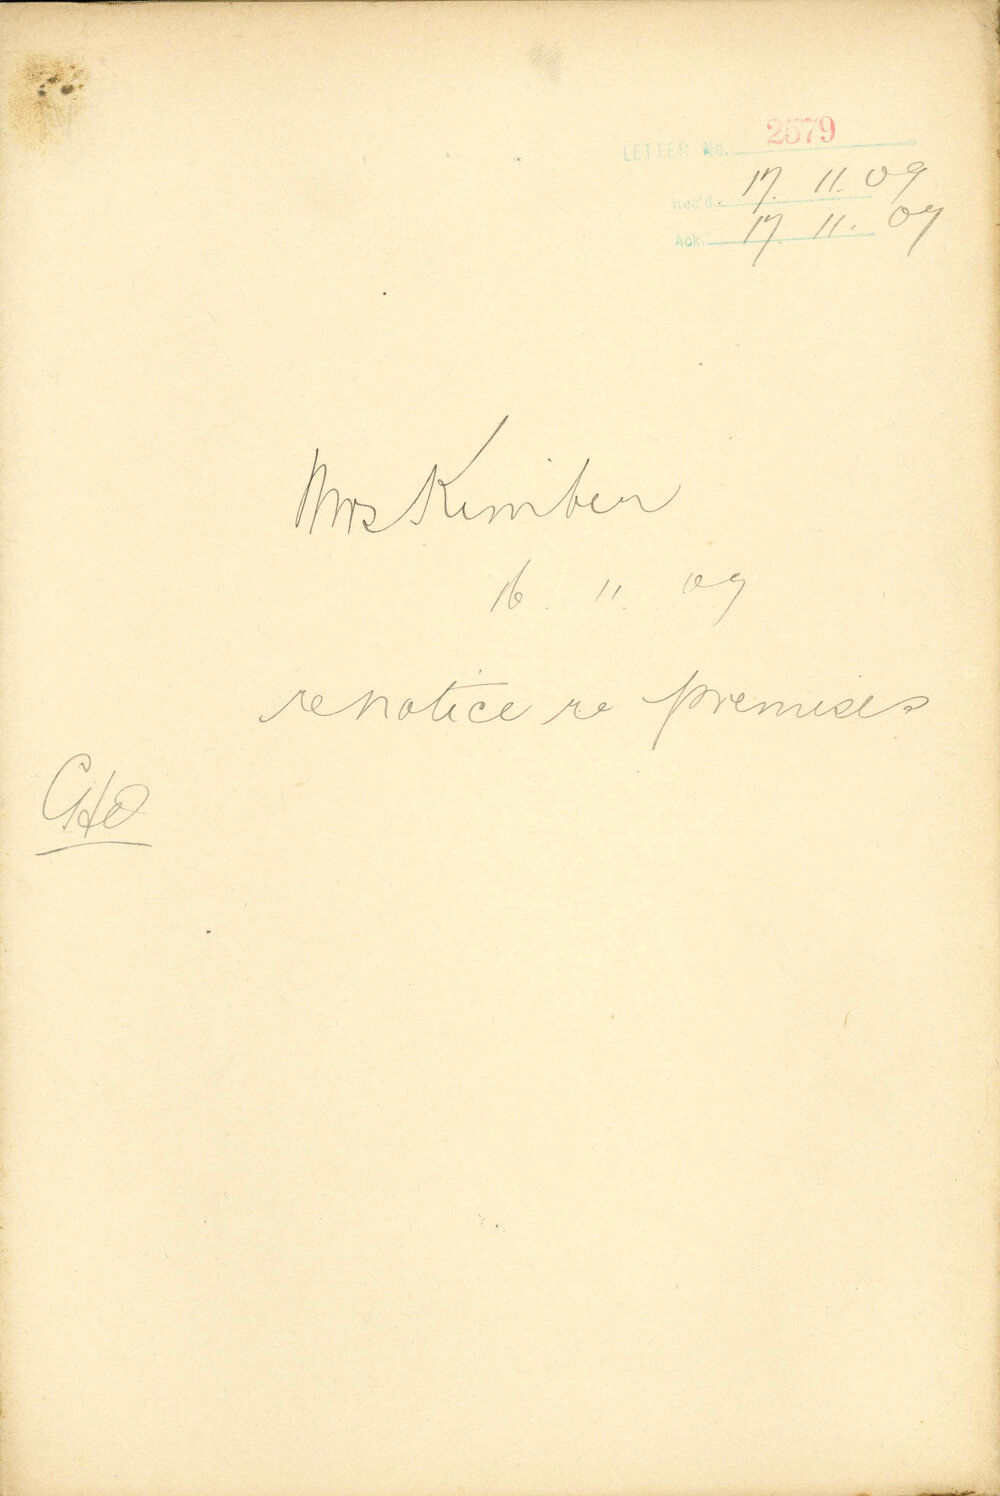 LETTER No. 2579
Rec'd. 17. 11. 09
Ack. 17. 11. 09
Mrs Kimber
16. 11. 09
re notice re premises
CHO